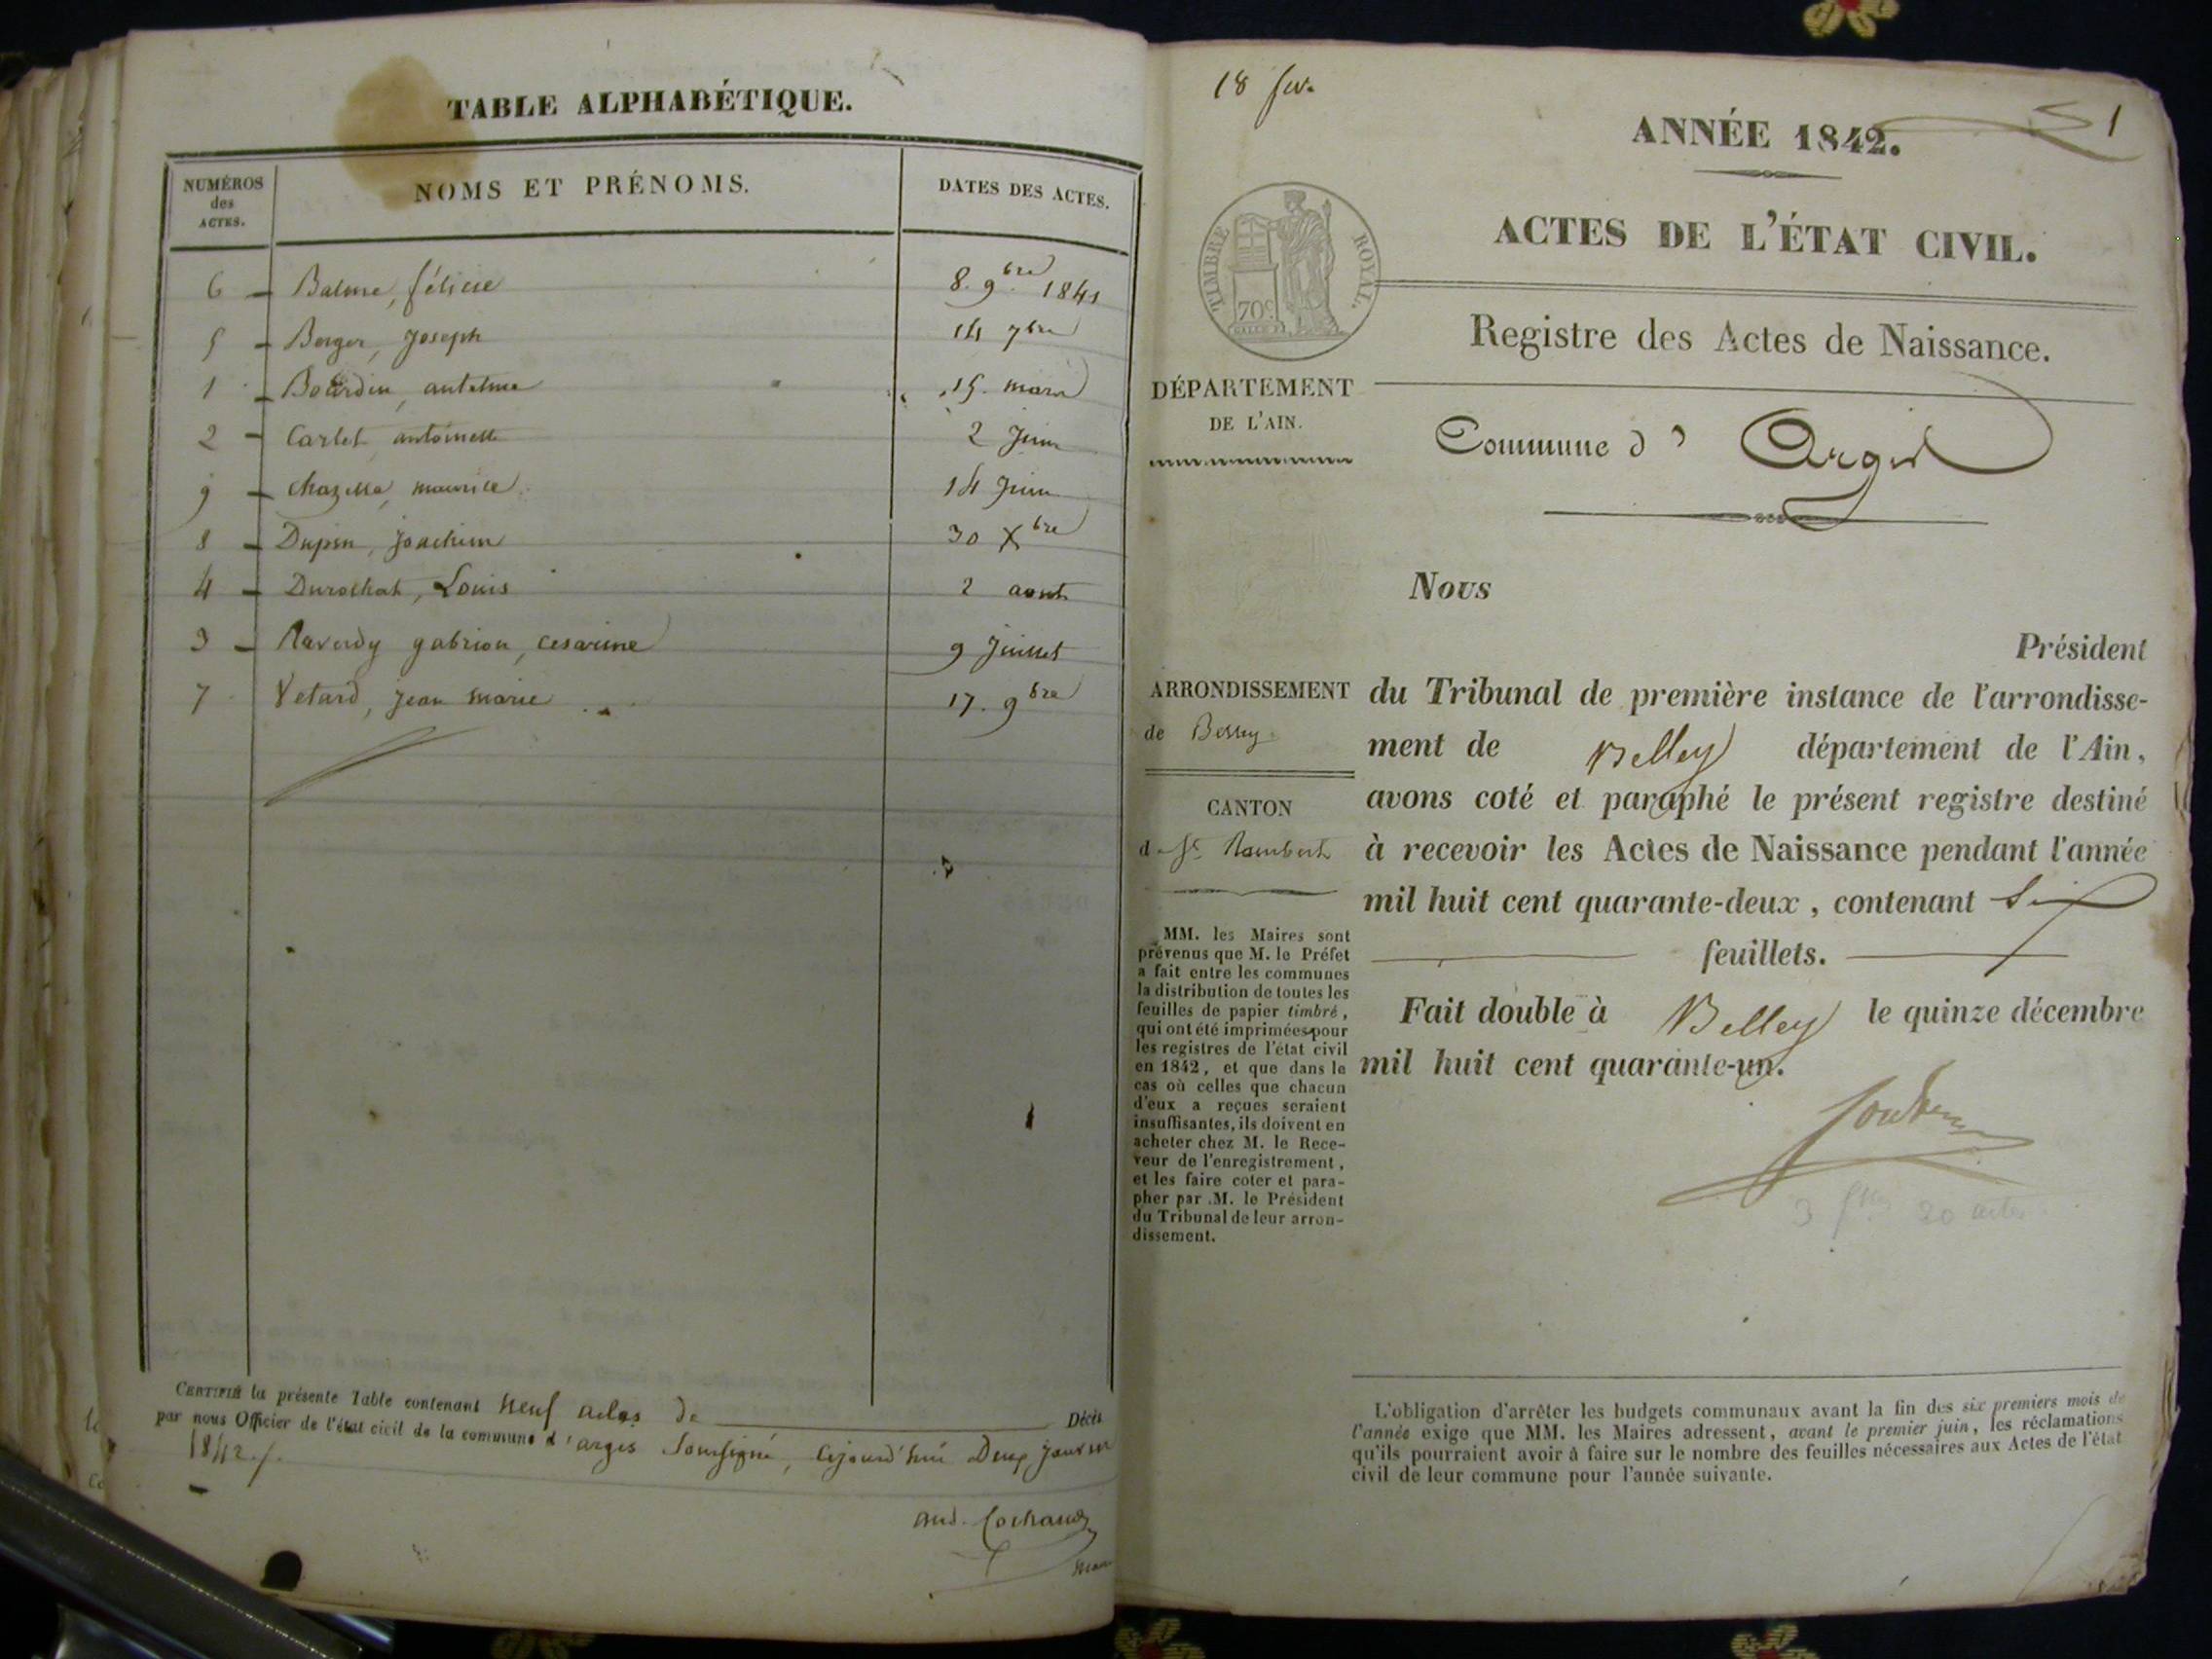 TABLE ALPHABÉTIQUE.
NUMÉROS des ACTES.
NOMS ET PRÉNOMS.
DATES DES ACTES.
6 - Balme, félicie 8. 9bre 1841
5 - Berger, Joseph 14 7bre
1 - Bourdin, antelme 15. mars
2 - Carlet antoinette 2 Juin
9 - Chazelle, maurice 14 Juin
8 - Dupin, Joachim 30 Xbre
4 - Durochat, Louis 2 aout
3 - Raverdy gabrion, cesarine 9 Juillet
7 Vetard, jean marie 17. 9bre
CERTIFIÉ la présente Table contenant neuf actes de Décès
par nous Officier de l'état civil de la commune d'argis Soussigné, cejourd'hui Deux janvier
1842./.
18 fev.
1
ANNÉE 1842.
ACTES DE L'ÉTAT CIVIL.
TIMBRE ROYAL.
70c.
Registre des Actes de Naissance.
DÉPARTEMENT
DE L'AIN.
Commune d' Argis
Nous
Président
ARRONDISSEMENT
de Belley
CANTON
de St Rambert
du Tribunal de première instance de l'arrondisse-
ment de Belley département de l'Ain,
avons coté et paraphé le présent registre destiné
à recevoir les Actes de Naissance pendant l'année
mil huit cent quarante-deux, contenant Six
feuillets.
Fait double à Belley le quinze décembre
mil huit cent quarante-un.
3 flles 20 actes
MM. les Maires sont
prévenus que M. le Préfet
a fait entre les communes
la distribution de toutes les
feuilles de papier timbré,
qui ont été imprimées pour
les registres de l'état civil
en 1842, et que dans le
cas où celles que chacun
d'eux a reçues seraient
insuffisantes, ils doivent en
acheter chez M. le Rece-
veur de l'enregistrement,
et les faire coter et para-
pher par M. le Président
du Tribunal de leur arron-
dissement.
L'obligation d'arrêter les budgets communaux avant la fin des six premiers mois de
l'année exige que MM. les Maires adressent, avant le premier juin, les réclamations
qu'ils pourraient avoir à faire sur le nombre des feuilles nécessaires aux Actes de l'état
civil de leur commune pour l'année suivante.